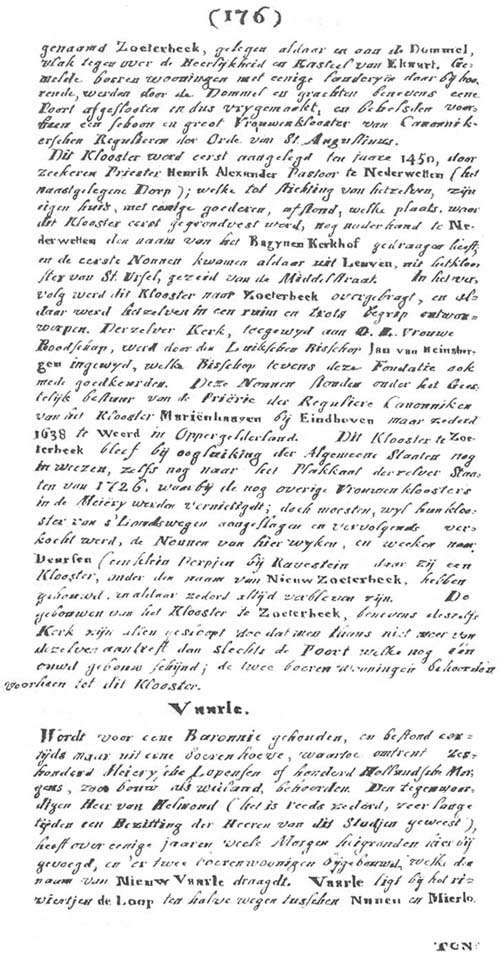 (176)
genaamd Zoeterbeek, gelegen aldaar en aan de Dommel,
vlak tegen over de Heerlijkheid en Kasteel van Eknart. Ge-
melde boeren wooningen met eenige landeryen daar bij hoo-
rende, werden door de Dommel en grachten benevens eene
Poort afgeslooten en dus vrygemaakt, en behelsden voor-
een schoon en groot Vrouwenklooster van Canonnik-
erschen Regulieren der Orde van St. Augustinus.
Dit Klooster werd eerst aangelegd ten jaare 1450, door
zeekeren Priester Henrik Alexander Pastoor te Nederwetten (het
naastgelegene Dorp); welke tot stichting van hetzelven, zijn
eigen huis, met eenige goederen, afstond, welke plaats, waar
dit Klooster eerst gegrondvest werd, nog naderhand te Ne-
derwetten den naam van het Bagynen Kerkhof gedraagen heeft,
en de eerste Nonnen kwamen aldaar uit Leuven, uit het kloo-
ster van St. Ursel, gezeid van de Middelstraat. In het ver-
volg werd dit Klooster naar Zoeterbeek overgebragt, en al-
daar werd hetzelven in een ruim en trots begrip ontwor-
worpen. Derzelver Kerk, toegewyd aan O. L. Vrouwe
Boodschap, werd door den Luikschen Bisschop Jan van Heinsber-
gen ingewyd, welke Bisschop tevens deze Fondatie ook
mede goedkeurden. Deze Nonnen stonden onder het Gees-
telijk bestuur van de Priörie der Reguliere Canonniken
van het Klooster Mariënhaagen bij Eindhoven maar zederd
1638 te Weerd in Oppergelderland. Dit Klooster te Zoe-
terbeek bleef bij oogluiking der Algemeene Staaten nog
in wezen, zelfs nog naar het Plakkaat derzelver Staa-
ten van 1726, waar bij de nog overige Vrouwenkloosters
in de Meiery werden vernietigdt; doch moesten, wyl hun kloo-
ster van s'Landswegen aangeslagen en vervolgends ver-
kocht werd, de Nonnen van hier wyken, en weeken naar
Deursen (een klein Dorpjen bij Ravestein daar zij een
Klooster, onder den naam van Nieuw Zoeterbeek, hebben
gebouwd, en aldaar zederd altijd verbleven zijn. De
gebouwen van het Klooster te Zoeterbeek, benevens deszelfs
Kerk zijn allen gesloopt zoo dat men thans niet meer van
dezelven aantreft dan slechts de Poort welke nog een
oud gebouw schijnd; de twee boeren wooningen behoorden
voorheen tot dit Klooster.
Vaarle.
Wordt voor eene Baronnie gehouden, en bestond eer-
tijds maar uit eene boerenhoeve, waartoe omtrent Zes-
honderd Meiery'sche Lopensen of honderd Hollandsche Mor-
gens, zoo bouw als weiland, behoorden. Den tegenwoor-
digen Heer van Helmond (het is reeds zederd, zeer lange
tijden een Bezitting der Heeren van dit Stadjen geweest),
heeft over eenige jaaren veele Morgen heigronden hier bij
gevoegd, en er twee boerenwooningen opgebouwd, welke den
naam van Nieuw Vaarle draagdt. Vaarle ligt bij het ri-
viertjen de Loop ten halve wegen tusschen Nunen en Mierlo.
TON